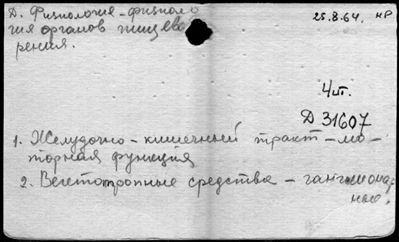 Д. Физиология – физиоло
гия органов пищева
рения.
25.8.64. нр
4 т.
Д 31607
1. Желудочно – кишечный тракт – мо-
торная функция
2. Вегетотропные средства – ганглиона-
ные.